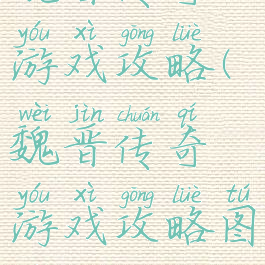 yóu xì gōng lüè
游戏攻略(
wèi jìn chuán qí
魏晋传奇
yóu xì gōng lüè tú
游戏攻略图